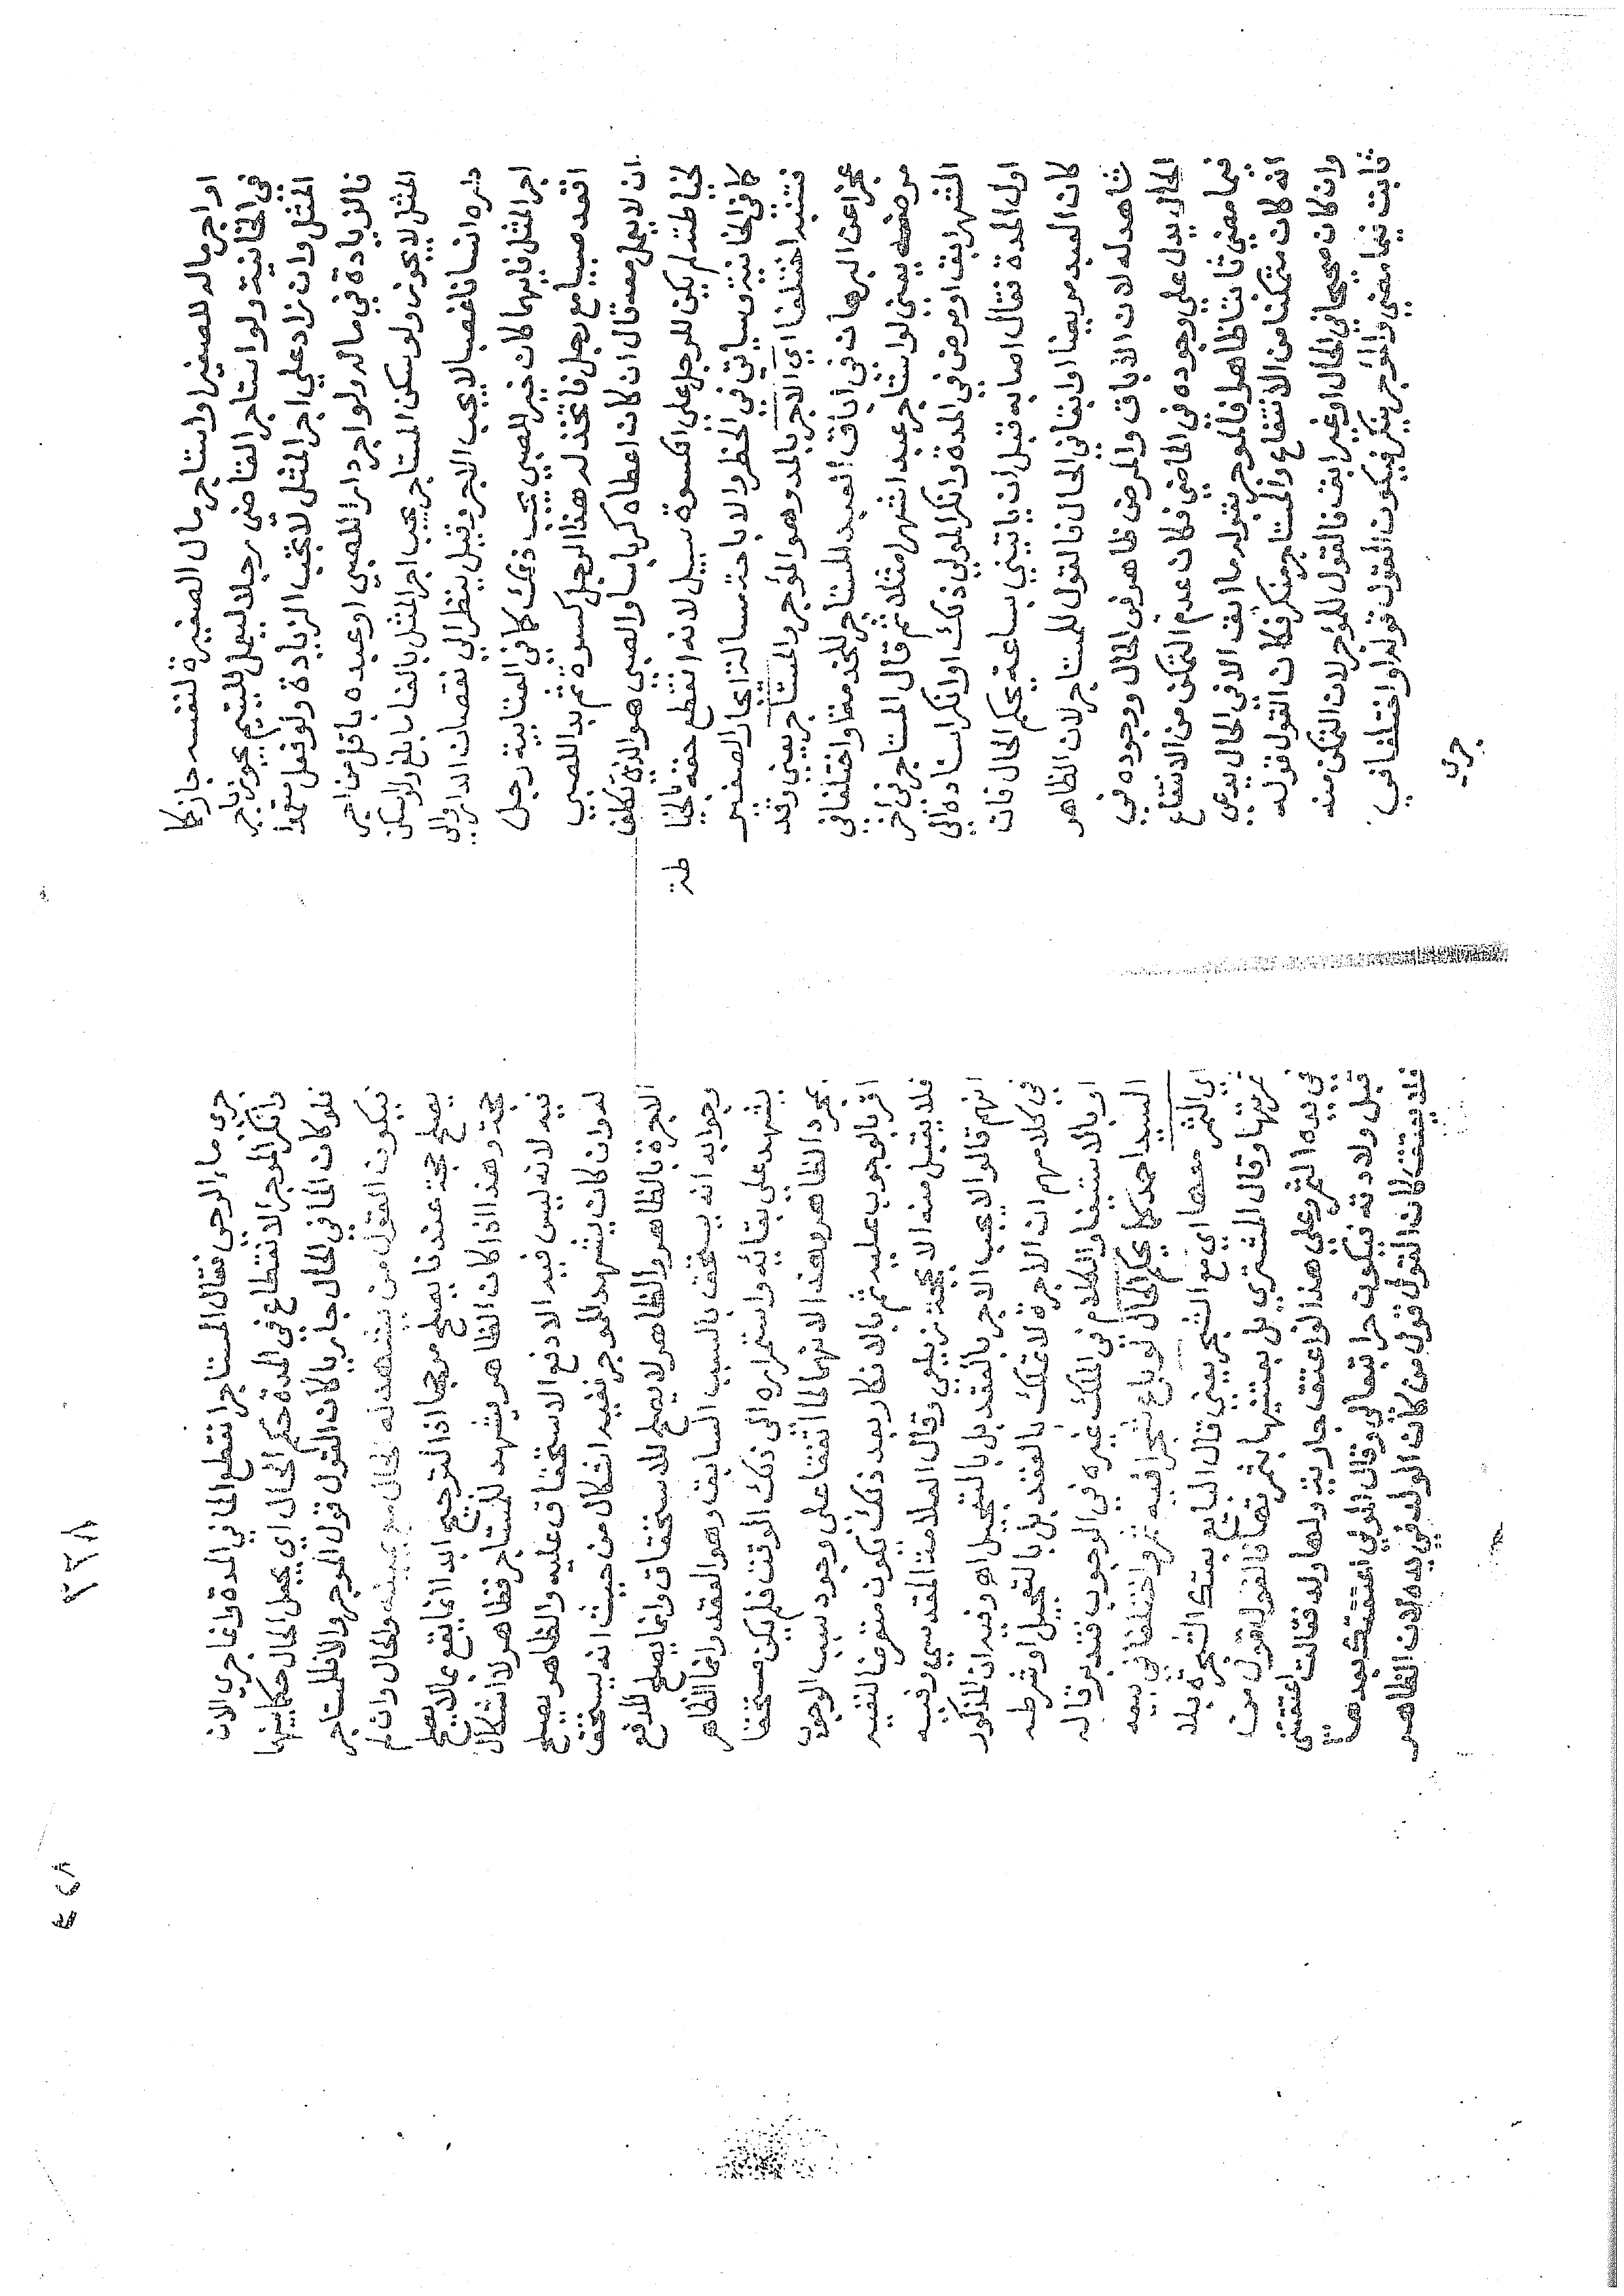 او اجر ماله للصغير او استاجر مال الصغيرة لنفسه جاز كما
في الخانية ولو استاجر القاضي رجلا ليعمل لليتيم يجوز باجر
المثل وان زاد على اجر المثل لا تجب الزيادة ولو فعل متعمدا
فالزيادة في ماله ولو اجر دارا للصبي او عبده باقل من اجر
المثل لا يجوز ولو سكن المستاجر يجب اجر المثل بالغا ما بلغ ولو سكن
داره انسان غصبا لا يجب الاجر وقيل ينظر الى نقصان الدار والى
اجر المثل فايهما كان خير للصبي يجب ذلك كما في العتابية رجل
اقعد صبيا مع رجل فاتخذ له هذا الرجل كسوة ثم بدا للصبي
ان لا يعمل معه قال ان كان اعطاه كرباسا والصبي هو الذي تكلف
لخياطته لم يكن للرجل على الكسوة سبيل لانه انقطع حقه بالخيا
طة
كما في الخانية وسياتي في الحظر والاباحة مسالة ايجار الصغير
فتنبه اختلفا اي الاجر بالمد وهو المؤجر والمستاجر يعني وقد
عجزا عن البرهان في اباق العبد المستاجر للخدمة او اختلفا في
مرضه يعني لو استاجر عبدا شهرا مثلا ثم قال المستاجر في آخر
الشهر ابق او مرض في المدة وانكر المولى ذلك او انكر اسناده الى
اول المدة فقال اصابه قبل ان ياتيني بساعة يحكم الحال فان
كان العبد مريضا او ابقا في الحال فالقول للمستاجر لان الظاهر
شاهد له لان الاباق والمرض ظاهر في الحال ووجوده في
الحال يدل على وجوده في الماضي فكان عدم التمكن من الانتفاع
فيما مضى ثابتا ظاهرا فالموجر بقوله ما ابق الا في الحال يدعي
انه كان متمكنا من الانتفاع والمستاجر منكر فكان القول قوله
وان كان صحيحا في الحال او غير ابق فالقول للمؤجر لان التمكن منه
ثابت فيما مضى والمؤجر ينكر فيكون القول قوله او اختلفا في
جري
٢٢٨
جري ماء الرحى فقال المستاجر انقطع الماء في المدة وانما جري الان
وانكر الموجر الانقطاع في المدة حكم الحال اي يجعل الحال حكما بينهما
فلو كان الماء في الحال جاريا كان القول قول الموجر والا فللمستاجر
فيكون القول من يشهد له الحال مع يمينه والحال وان لم
يصلح حجة عندنا يصلح مرجحا اذ الترجيح ابدا انما يقع بما لا يصلح
حجة وهذا اذا كان الظاهر يشهد للمستاجر فظاهر لا اشكال
فيه لانه ليس فيه الا دفع الاستحقاق عليه والظاهر يصلح
له وان كان يشهد للموجر ففيه اشكال من حيث انه يستحق
الاجرة بالظاهر والظاهر لا يصلح للاستحقاق وانما يصلح للدفع
وجوابه انه يستحق بالسبب السابق وهو العقد وانما الظاهر
يشهد على بقائه واستمراره الى ذلك الوقت فلم يكن مستحقا
بمجرد الظاهر وهذا لانهما لما اتفقا على وجود سبب الوجوب
اقر بالوجوب عليه ثم بالانكار بعد ذلك يكون متعرضا لنفيه
فلا يقبل منه الا بحجة زيلعي وقال العلامة المقدسي وفيه
انهم قالوا لا يجب الاجر بالعقد بل بالتعجيل اهـ وفيه ان المذكور
في كلامهم ان الاجرة لا تملك بالعقد بل بالتعجيل او شرطه
او بالاستيفاء والكلام في الملك غيره في الوجوب فتدبر قاله
السيد احمد كما يحكم الحال لو باع شجرا فيه ثمر واختلفا في بيعه
اي الثمر معها اي مع الشجر يعني قال البايع بعتك الشجرة بلا
ثمرتها وقال المشتري بل بعتنيها بثمرتها فالقول قول من
في يده الثمر وعلى هذا لو اعتق جارية ولها ولد فقالت اعتقتني
قبل ولادته فيكون حرا تبعا لي وقال المولى اعتقتك بعدها
فلا يعتق كان القول قول من كان الولد في يده لان الظاهر
٤٢٨